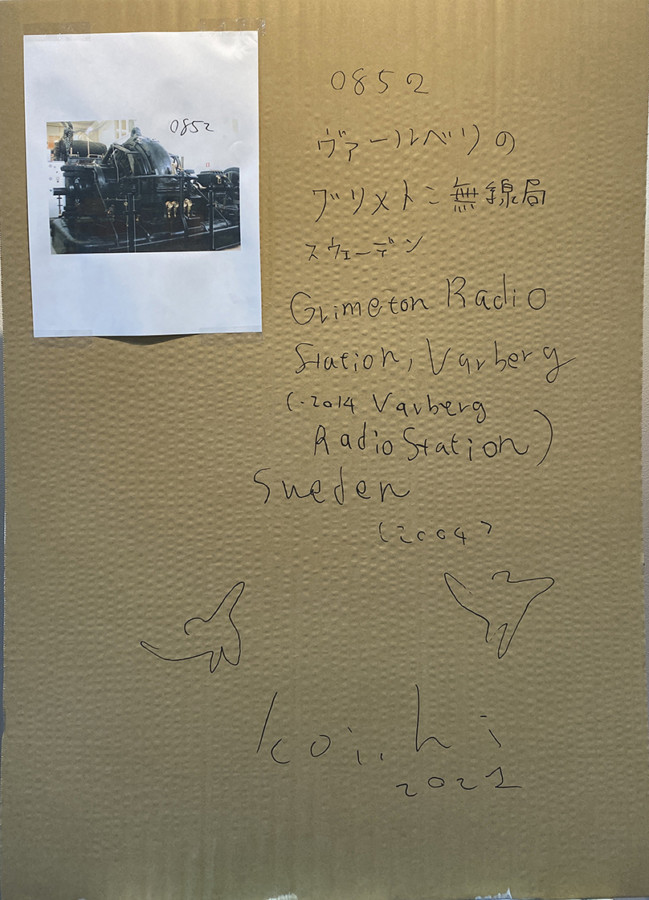 0852
0852
ヴァールベリの
グリメトン無線局
スウェーデン
Grimeton Radio
Station, Varberg
(-2014 Varberg
Radio Station)
Sweden
(2004)
koichi
2021